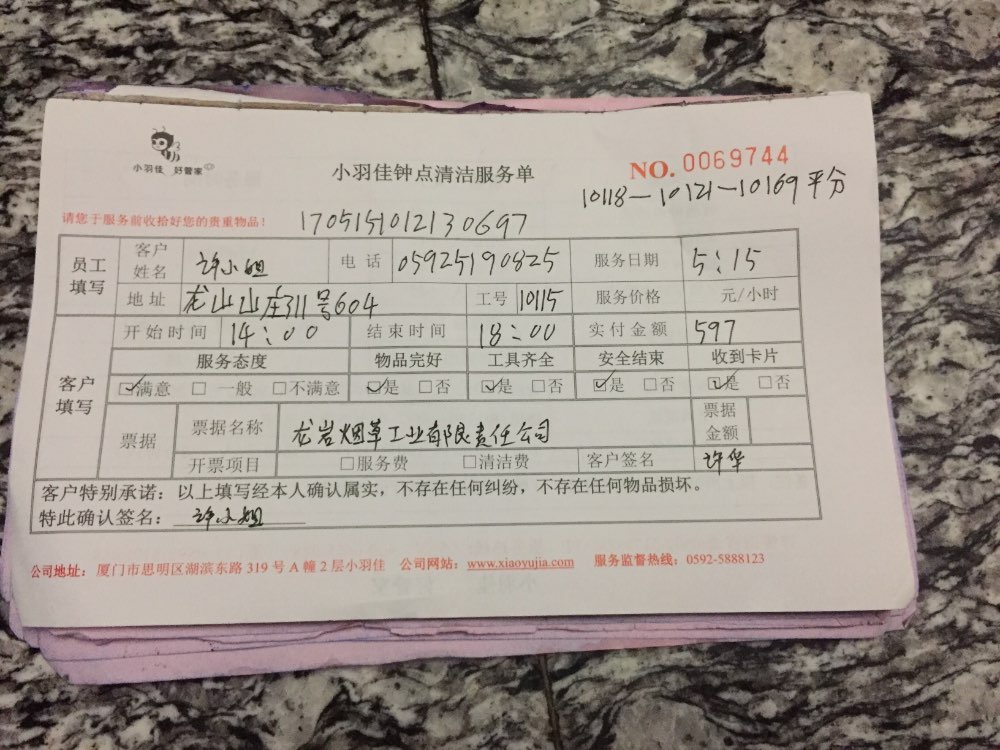 小羽佳 好管家
小羽佳钟点清洁服务单
NO. 0069744
10118—10121—10169平分
请您于服务前收拾好您的贵重物品！
170515101213 0697
员工填写 客户姓名 许小姐 电话 05925190825 服务日期 5:15
地址 龙山山庄311号604 工号 10115 服务价格 元/小时
客户填写 开始时间 14:00 结束时间 18:00 实付金额 597
服务态度 物品完好 工具齐全 安全结束 收到卡片
☑满意 □一般 □不满意 ☑是 □否 ☑是 □否 ☑是 □否 ☑是 □否
票据 票据名称 龙岩烟草工业有限责任公司 票据金额
开票项目 □服务费 □清洁费 客户签名 许华
客户特别承诺：以上填写经本人确认属实，不存在任何纠纷，不存在任何物品损坏。
特此确认签名： 许小姐
公司地址： 厦门市思明区湖滨东路 319 号 A 幢 2 层小羽佳 公司网站：www.xiaoyujia.com 服务监督热线：0592-5888123